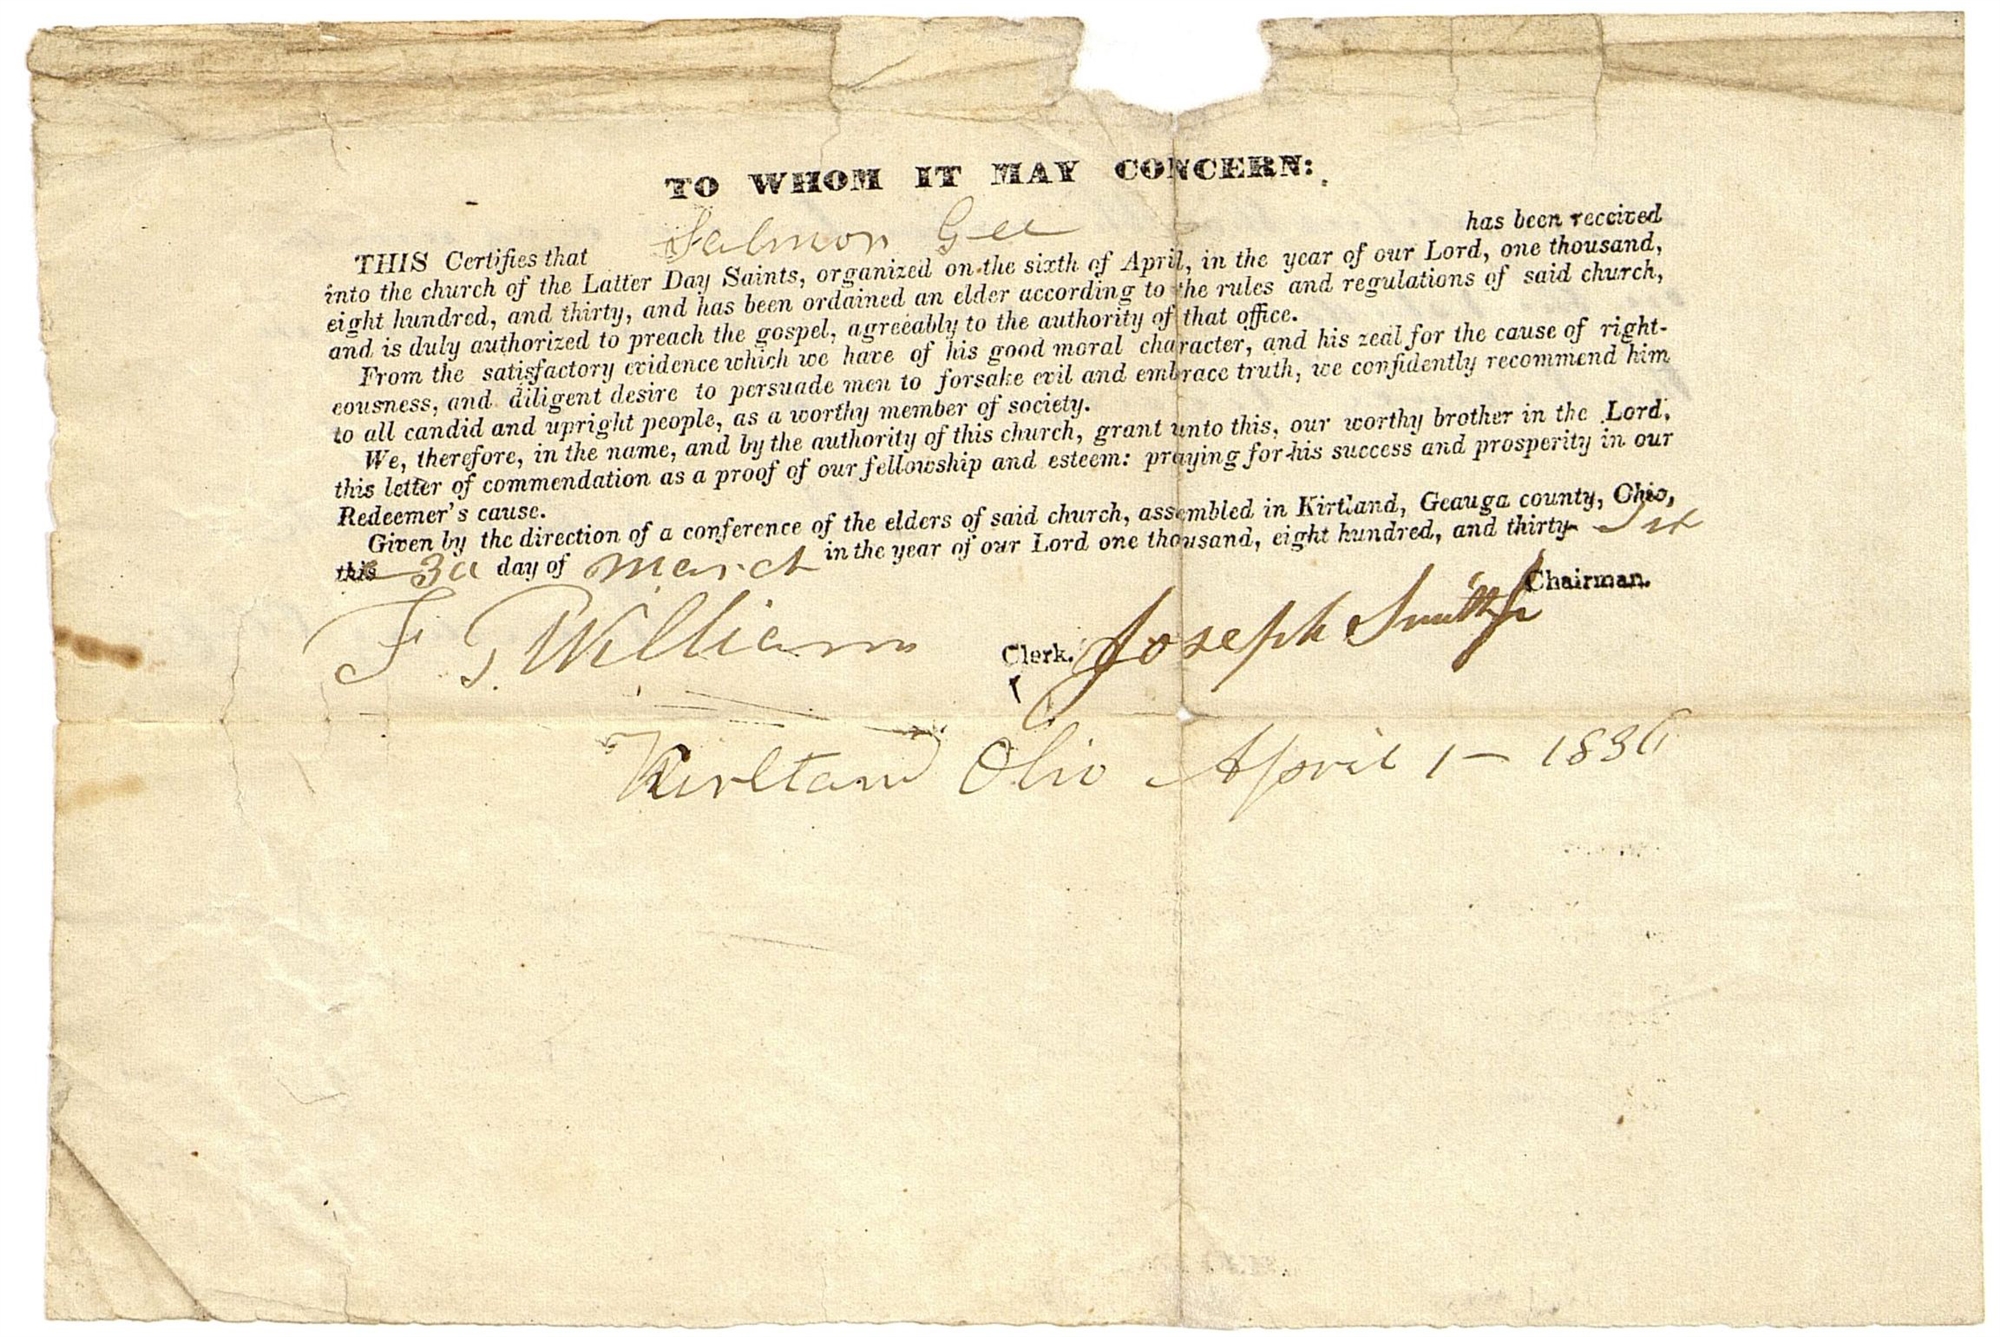 TO WHOM IT MAY CONCERN:
THIS Certifies that Salmon Gee has been received
into the church of the Latter Day Saints, organized on the sixth of April, in the year of our Lord, one thousand,
eight hundred, and thirty, and has been ordained an elder according to the rules and regulations of said church,
and is duly authorized to preach the gospel, agreeably to the authority of that office.
From the satisfactory evidence which we have of his good moral character, and his zeal for the cause of right-
eousness, and diligent desire to persuade men to forsake evil and embrace truth, we confidently recommend him
to all candid and upright people, as a worthy member of society.
We, therefore, in the name, and by the authority of this church, grant unto this, our worthy brother in the Lord,
this letter of commendation as a proof of our fellowship and esteem: praying for his success and prosperity in our
Redeemer's cause.
Given by the direction of a conference of the elders of said church, assembled in Kirtland, Geauga county, Ohio,
this 3d day of March in the year of our Lord one thousand, eight hundred, and thirty- Six
Joseph Smith Jr Chairman.
F G Williams Clerk.
Kirtland Ohio April 1 - 1836